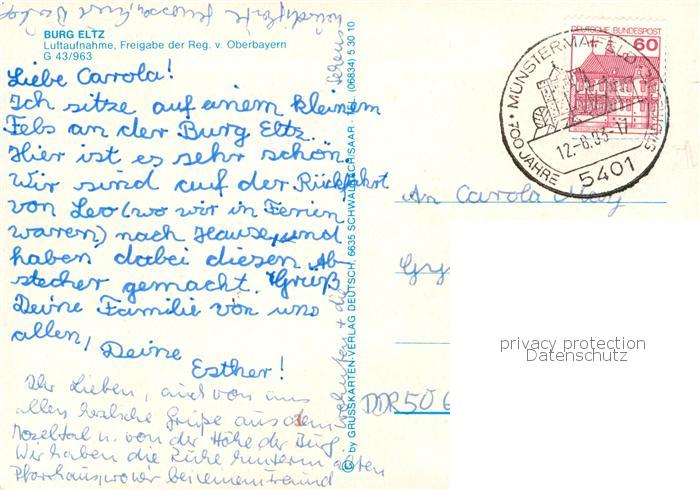 BURG ELTZ
Luftaufnahme, Freigabe der Reg. v. Oberbayern
G 43/963
Liebe Carrola!
Ich sitze auf einem kleinem
Fels an der Burg Eltz.
Hier ist es sehr schön
Wir sind auf der Rückfahrt
von Leo (wo wir in Ferien
waren) nach Hause, und
haben dabei diesen Ab-
stecher gemacht. Grüß
Deine Familie von uns
allen, Deine
Esther!
Ihr Lieben, auch von uns
allen herzliche Grüße aus dem
Moseltal u. von der Höhe der Burg
Wir haben die Ruhe hinterm
Pfarrhaus, wo wir bei einem Freund
wohnten + die
© by GRUSSKARTEN-VERLAG DEUTSCH, 6635 SCHWALBACH/SAAR · Tel. (06834) 5 30 10
DEUTSCHE BUNDESPOST
60
MÜNSTERMAIFELD
700 JAHRE
STADT
12.-8.83-17
5401
An Carola
DDR 50
privacy protection
Datenschutz